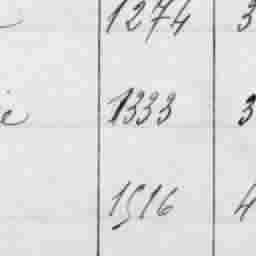 1274 3
ie 1333 3
1516 4